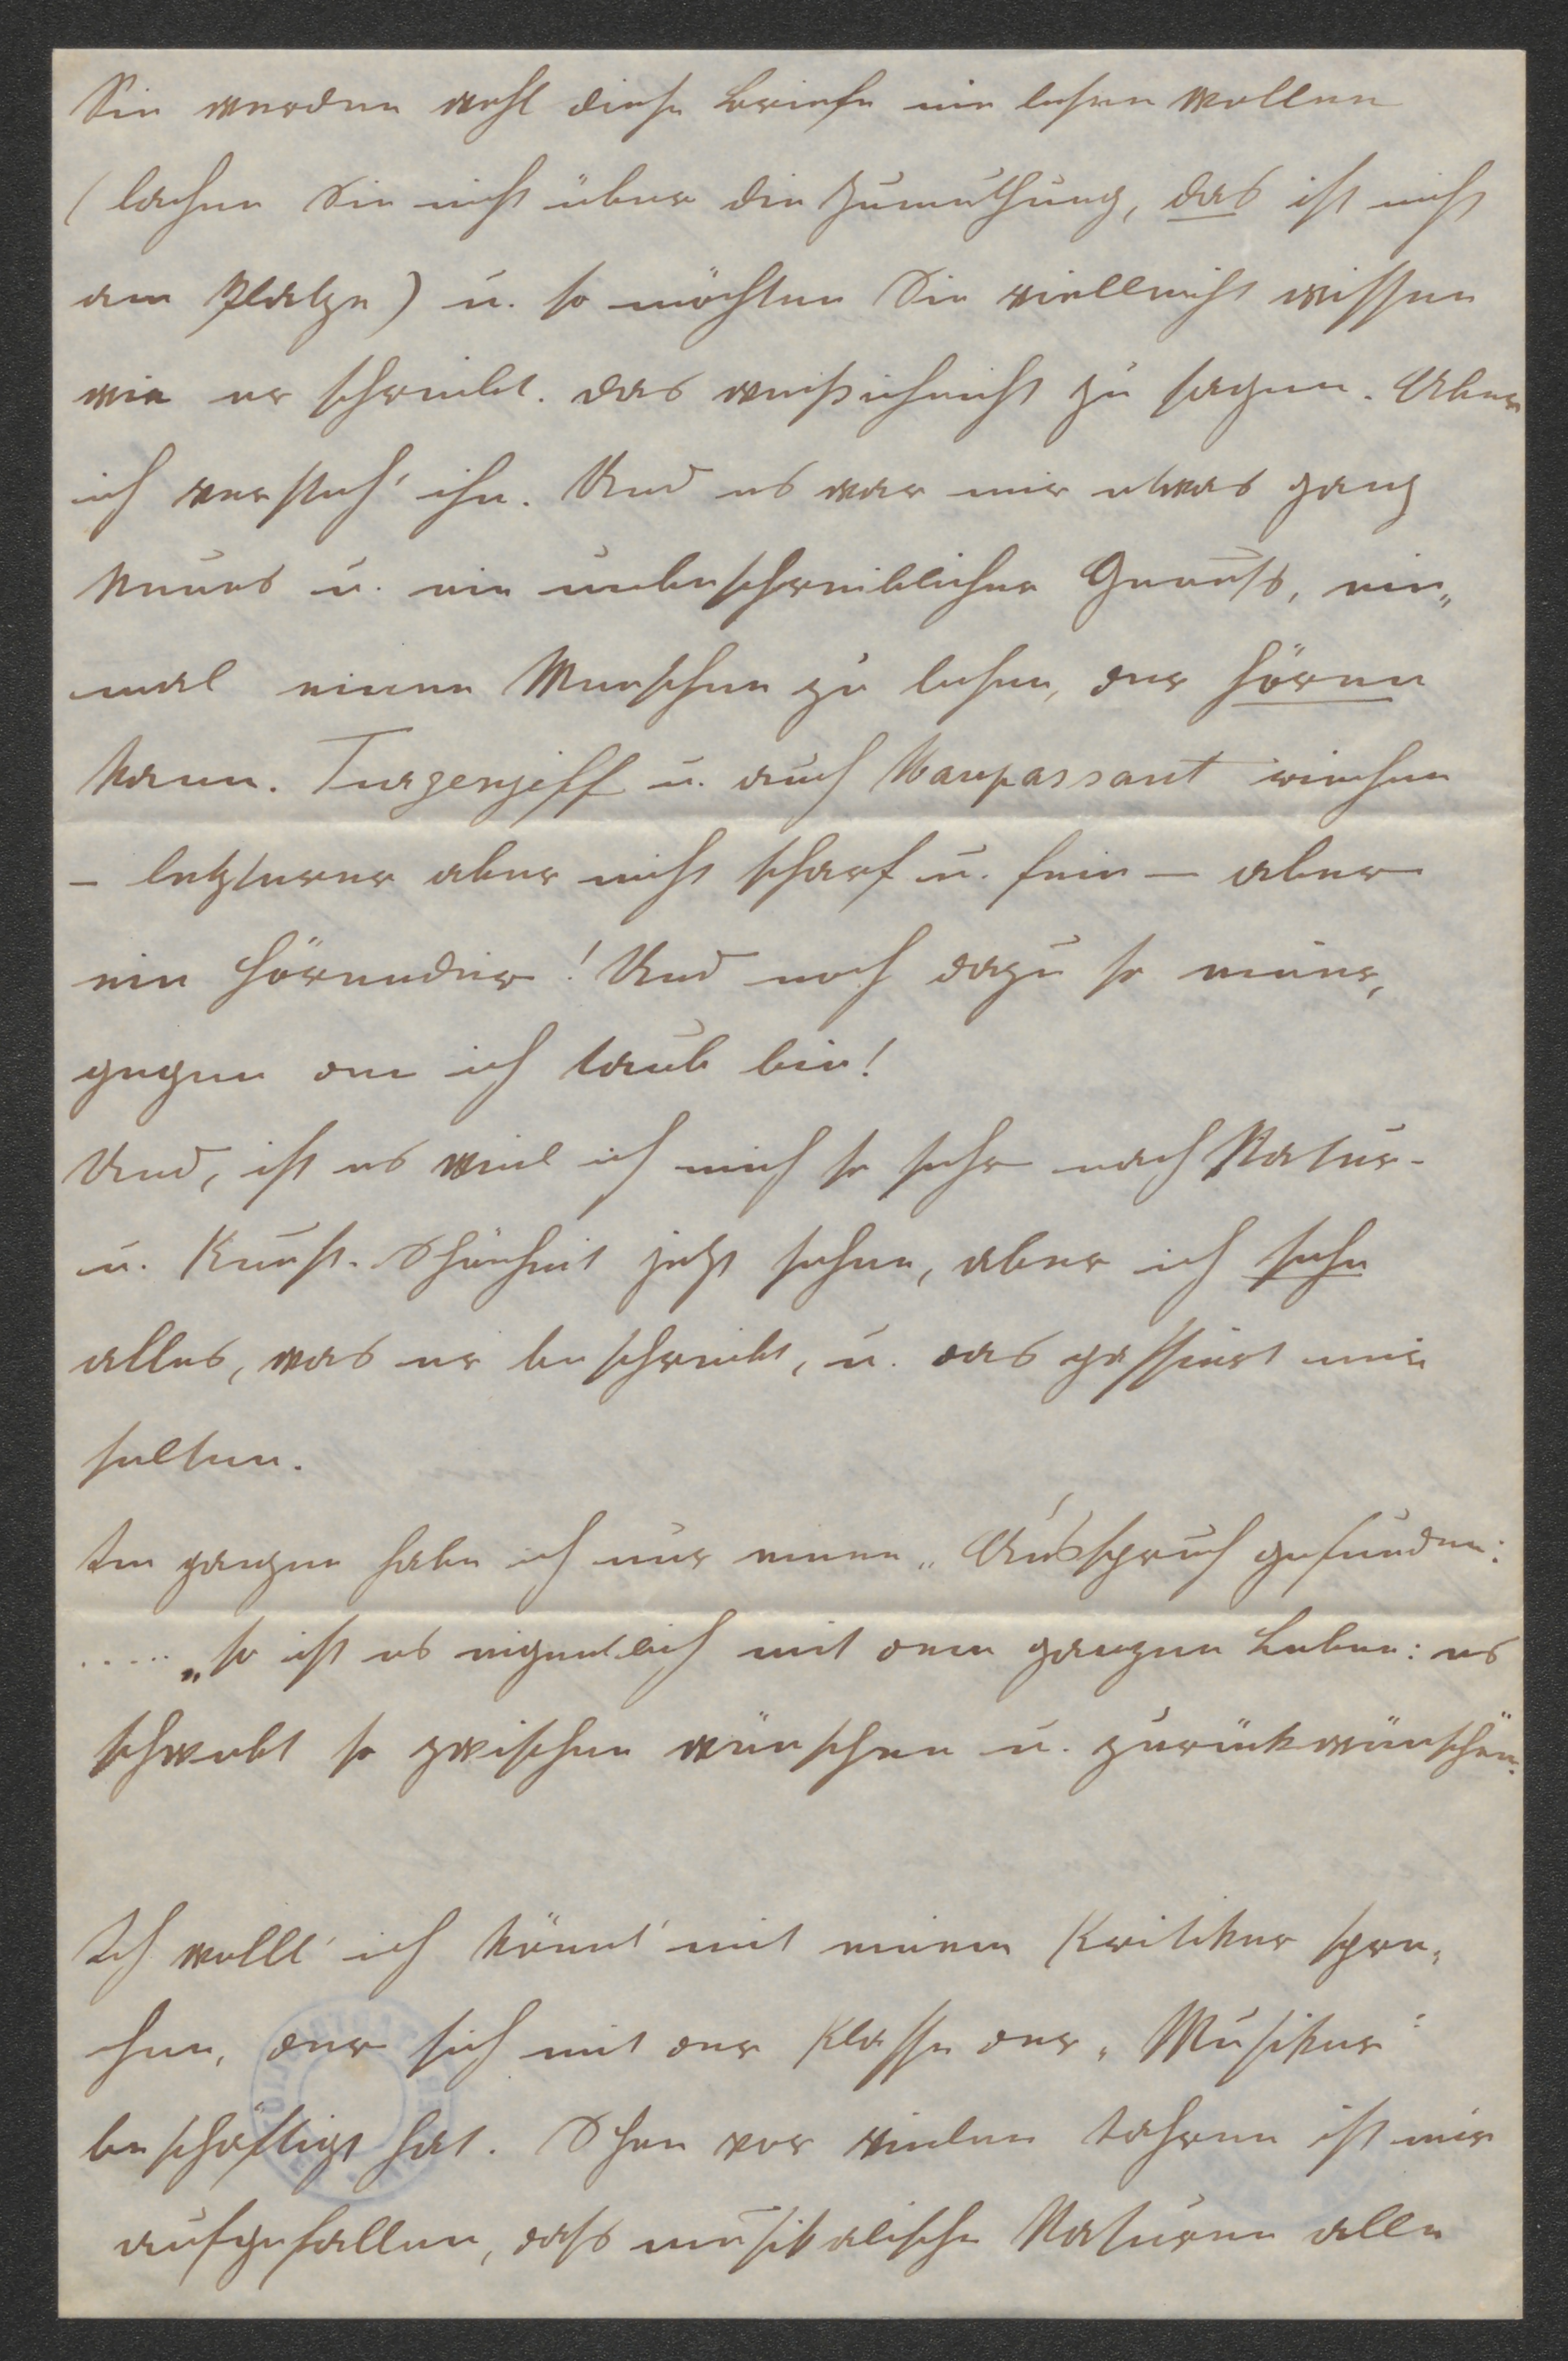 Sie werden wohl diese Briefe nie lesen wollen
(lachen Sie nicht über die Zumuthung, das ist nicht
am Platze) u. so möchten Sie vielleicht wissen
wie er schreibt. Das weiß ich nicht zu sagen. Aber
ich versteh' ihn. Und es war mir etwas ganz
Neues u. ein unbeschreiblicher Genuss, ein„
mal einen Menschen zu lesen, der hören
kann. Turgenjeff u. auch Maupassant riechen
– letzterer aber nicht scharf u. fein – aber
ein Hörender! Und noch dazu so einer,
gegen den ich taub bin!
Und, ist es weil ich mich so sehr nach Natur-
u. Kunst-Schönheit jetzt sehne, aber ich sehe
alles, was er beschreibt, u. das passiert mir
selten.
Im ganzen habe ich nur einen „Ausspruch gefunden:
..... „so ist es eigentlich mit dem ganzen Leben: es
schwebt so zwischen wünschen u. zurückwünschen.
Ich wollt' ich könnt' mit einem Kritiker spre„
chen, der sich mit der Klasse der „Musiker"
beschäftigt hat. Schon vor vielen Jahren ist mir
aufgefallen, dass musikalische Naturen alle